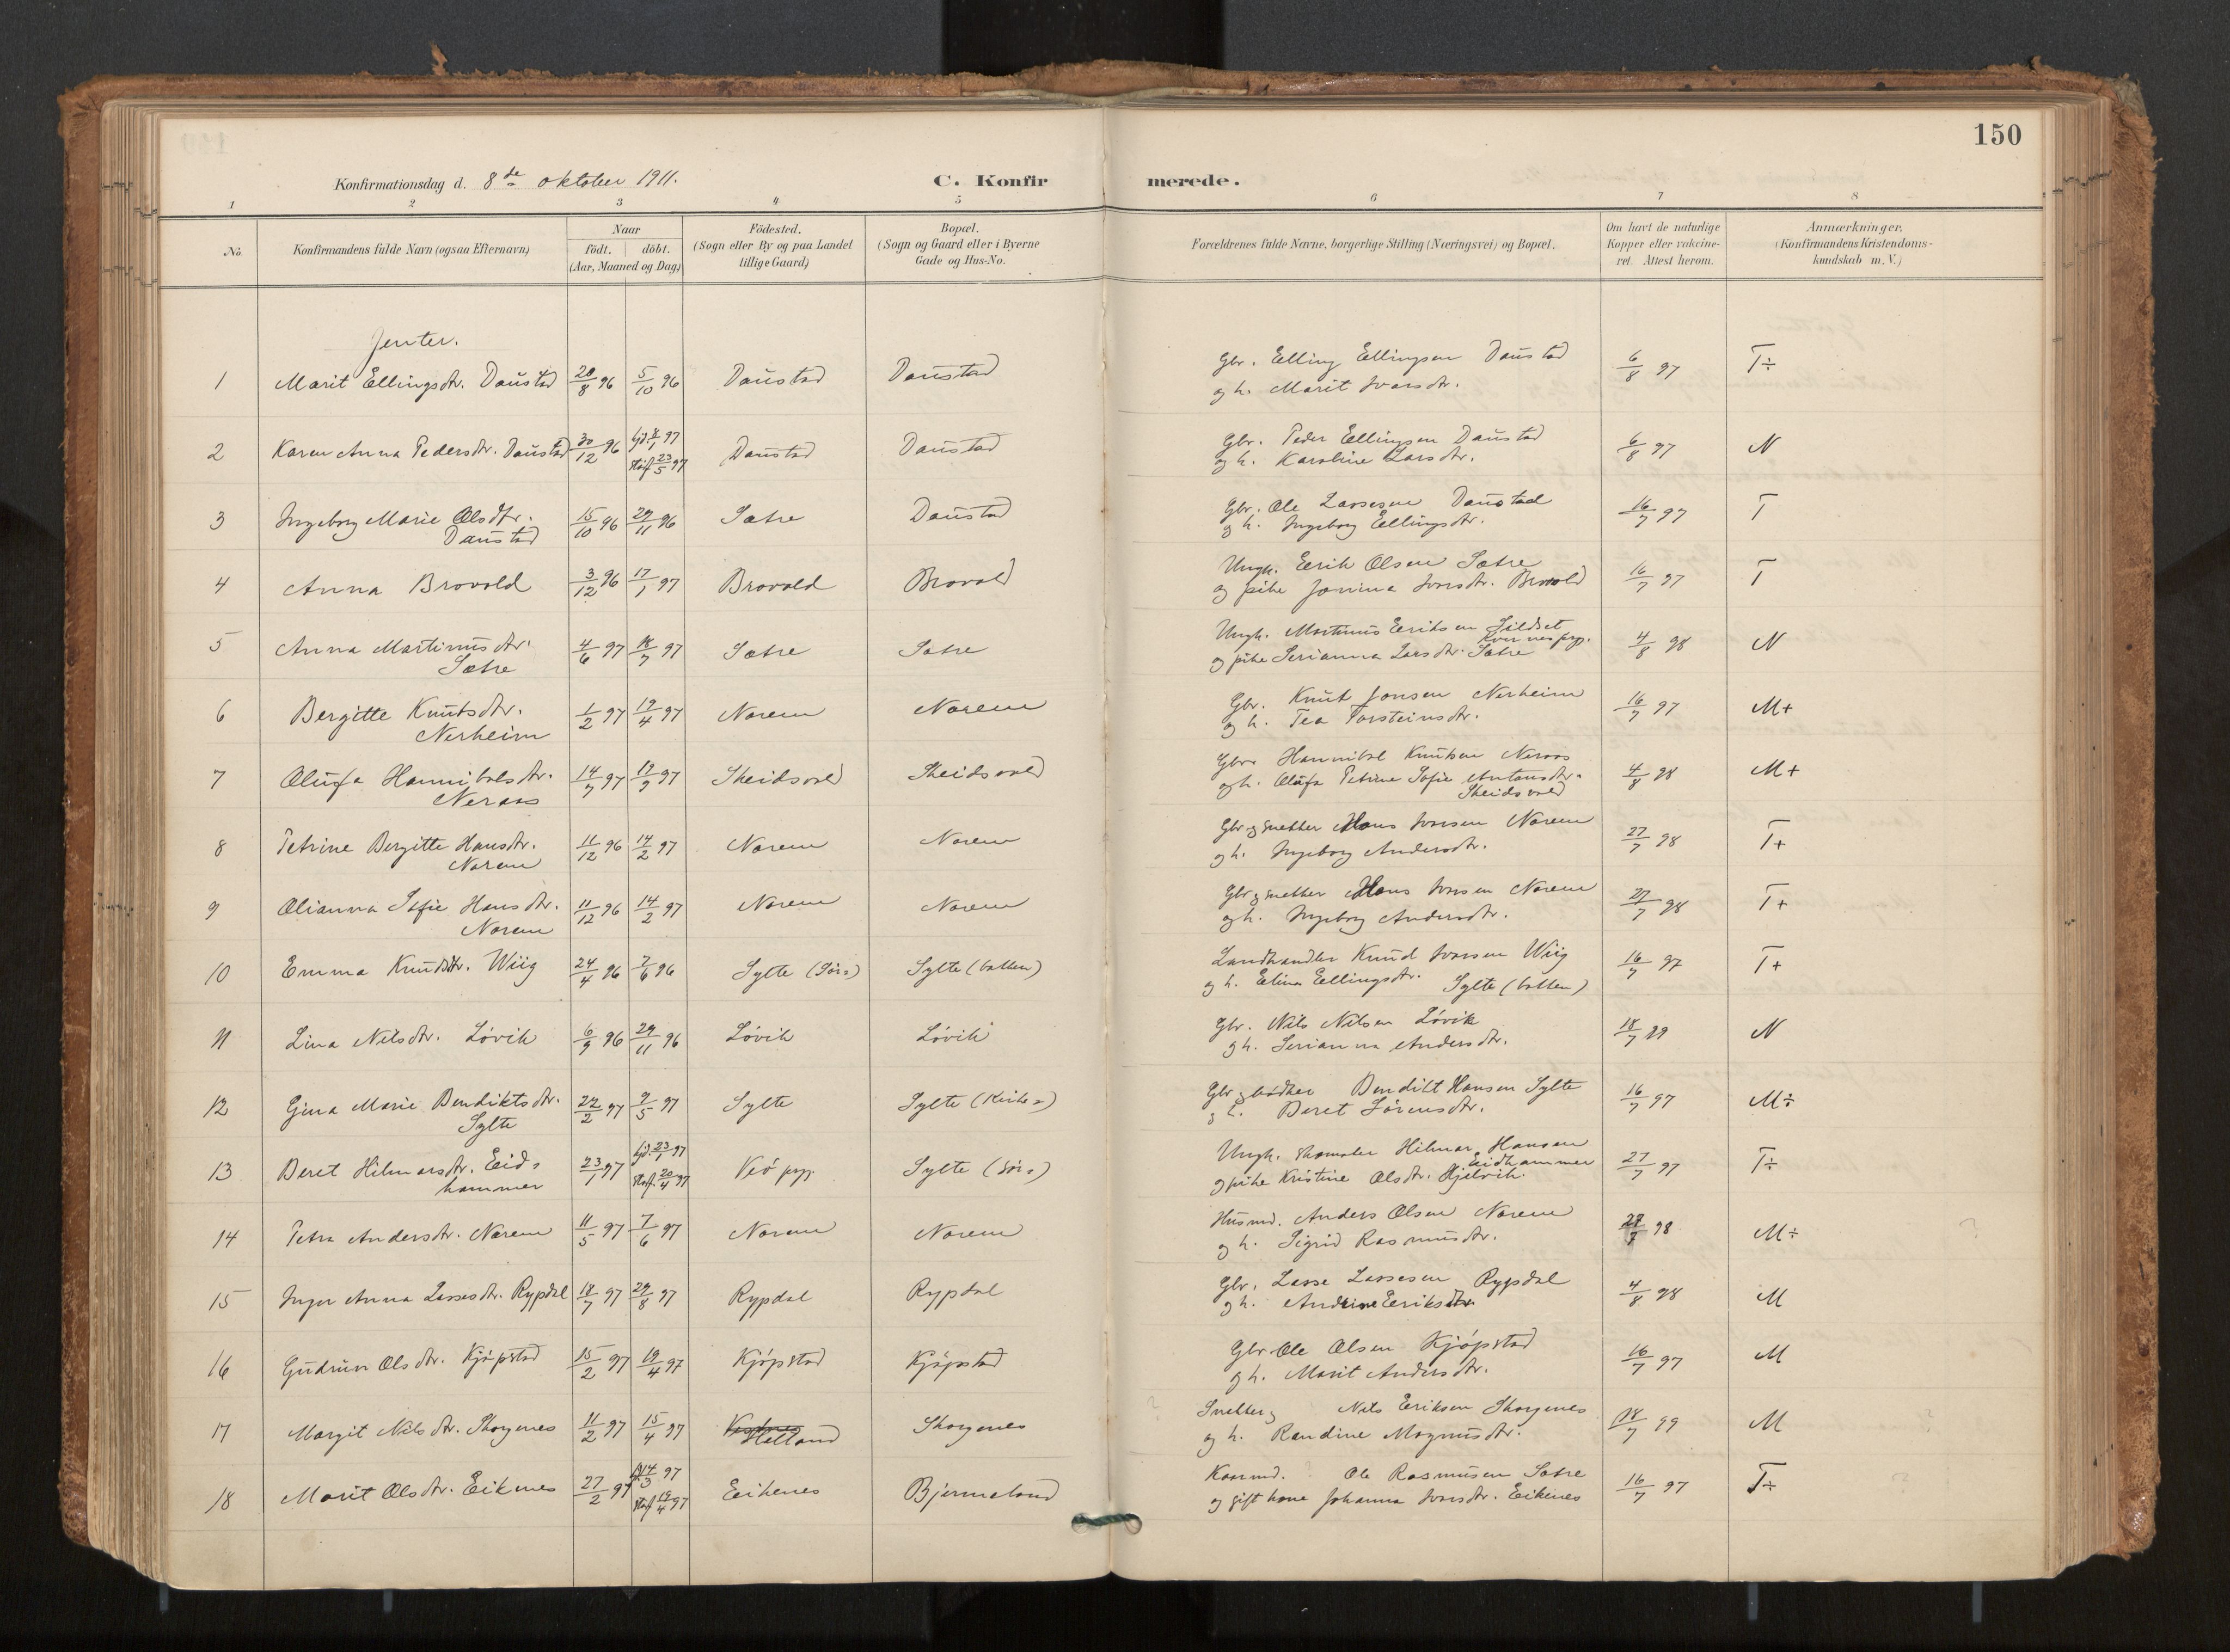 150
Konfirmationsdag d. 8de oktober 1911.
C. Konfirmerede.
1 2 3 4 5 6 7 8
No. Konfirmandens fulde Navn (ogsaa Efternavn) Naar født. døbt. (Aar, Maaned og Dag) Fødested. (Sogn eller By og paa Landet tillige Gaard) Bopæl. (Sogn og Gaard eller i Byerne Gade og Hus-No. Forældrenes fulde Navne, borgerlige Stilling (Næringsvei) og Bopæl. Om havt de naturlige Kopper eller vakcineret. Attest herom. Anmærkninger, (Konfirmandens Kristendomskundskab m. V.)
Jenter.
1 Marit Ellingsdtr. Daustad 20/8 96 5/10 96 Daustad Daustad Gbr. Elling Ellingsen Daustad 6/8 97 T÷
og h. Marit Ivarsdtr.
2 Karen Anna Pedersdtr. Daustad 30/12 96 hjd. 8/1 97 Daustad Daustad Gbr. Peder Ellingsen Daustad 6/8 97 N
Stadf. 23/5 97 og h. Karoline Larsdtr.
3 Ingeborg Marie Olsdtr. 15/10 96 29/11 96 Sætre Daustad Gbr. Ole Lassesen Daustad 16/7 97 T
Daustad og h. Ingeborg Ellingsdtr.
4 Anna Brovold 3/12 96 17/1 97 Brovold Brovold Ungk. Eerik Olsen Sætre 16/7 97 T
og pike Jonina Ivarsdtr. Brovold
5 Anna Martinusdtr. 4/6 97 18/7 97 Sætre Sætre Ungk. Martinus Eeriksen Sildset 4/8 98 N
Kvernes prg.
Sætre og pike Serianna Larsdtr. Sætre
6 Bergitte Knutsdtr. 1/2 97 19/4 97 Norem Norem Gbr. Knut Jonsen Nerheim 16/7 97 M+
Nerheim og h. Tea Torsteinsdtr.
7 Olufa Hannibalsdtr. 14/7 97 19/9 97 Skeidsvold Skeidsvold Gbr. Hannibal Knutsen Neraas 4/8 98 M+
Neraas og h. Olufa Petrine Sofie Antonsdtr.
Skeidsvold
8 Petrine Bergitte Hansdtr. 11/12 96 14/2 97 Norem Norem Gbr og snekker Hans Ivarsen Norem 27/7 98 T+
Norem og h. Ingeborg Andersdtr.
9 Olianna Sofie Hansdtr. 11/12 96 14/2 97 Norem Norem Gbr og snekker Hans Ivarsen Norem 27/7 98 T+
Norem og h. Ingeborg Andersdtr.
10 Emma Knudsdtr. Wiig 24/4 96 7/6 96 Sylte (Sör=) Sylte (bakken) Landhandler Knud Ivarsen Wiig 16/7 97 T+
og h. Elina Ellingsdtr. Sylte (bakken)
11 Lina Nilsdtr. Lövik 6/9 96 29/11 96 Lövik Lövik Gbr. Nils Nilsen Lövik 18/7 99 N
og h. Serianna Andersdtr.
12 Gina Marie Bendiktsdtr. 22/2 97 9/5 97 Sylte Sylte (Kirke=) Gbr og bödker Bendikt Hansen Sylte 16/7 97 M÷
Sylte og h. Beret Sörensdtr.
13 Beret Hilmarsdtr. Eids 23/1 97 hjd. 23/1 97 Veö prg. Sylte (Sör=) Ungk. Skomaker Hilmar Hansen 27/7 97 T÷
Eidhammer
hammer Stadf. 20/4 97 og pike Kristine Olsdtr. Hjelvik.
14 Petra Andersdtr. Norem 11/5 97 7/6 97 Norem Norem Husmd. Anders Olsen Norem 27/7 98 M÷
og h. Sigrid Rasmusdtr.
15 Inger Anna Lassesdtr. Rypdal 18/7 97 29/8 97 Rypdal Rypdal Gbr. Lasse Lassesen Rypdal 4/8 98 M
og h. Andrine Eeriksdtr.
16 Gudrun Olsdtr. Kjöpstad 15/2 97 19/4 97 Kjöpstad Kjöpstad Gbr Ole Olsen Kjöpstad 16/7 97 M
og h. Marit Andersdtr.
17 Margit Nilsdtr. Skorgenes 11/2 97 15/4 97 Vestnes Helland Skorgenes Snekker Nils Eeriksen Skorgenes 18/7 99 M
og h. Randine Magnusdtr.
18 Marit Olsdtr. Eiknes 27/2 97 hjd. 14/3 97 Eikenes Bjermeland Kaarmd. Ole Rasmusen Sætre 16/7 97 T÷
Stadf. 19/4 97 og gift kone Johanna Ivarsdtr. Eikenes